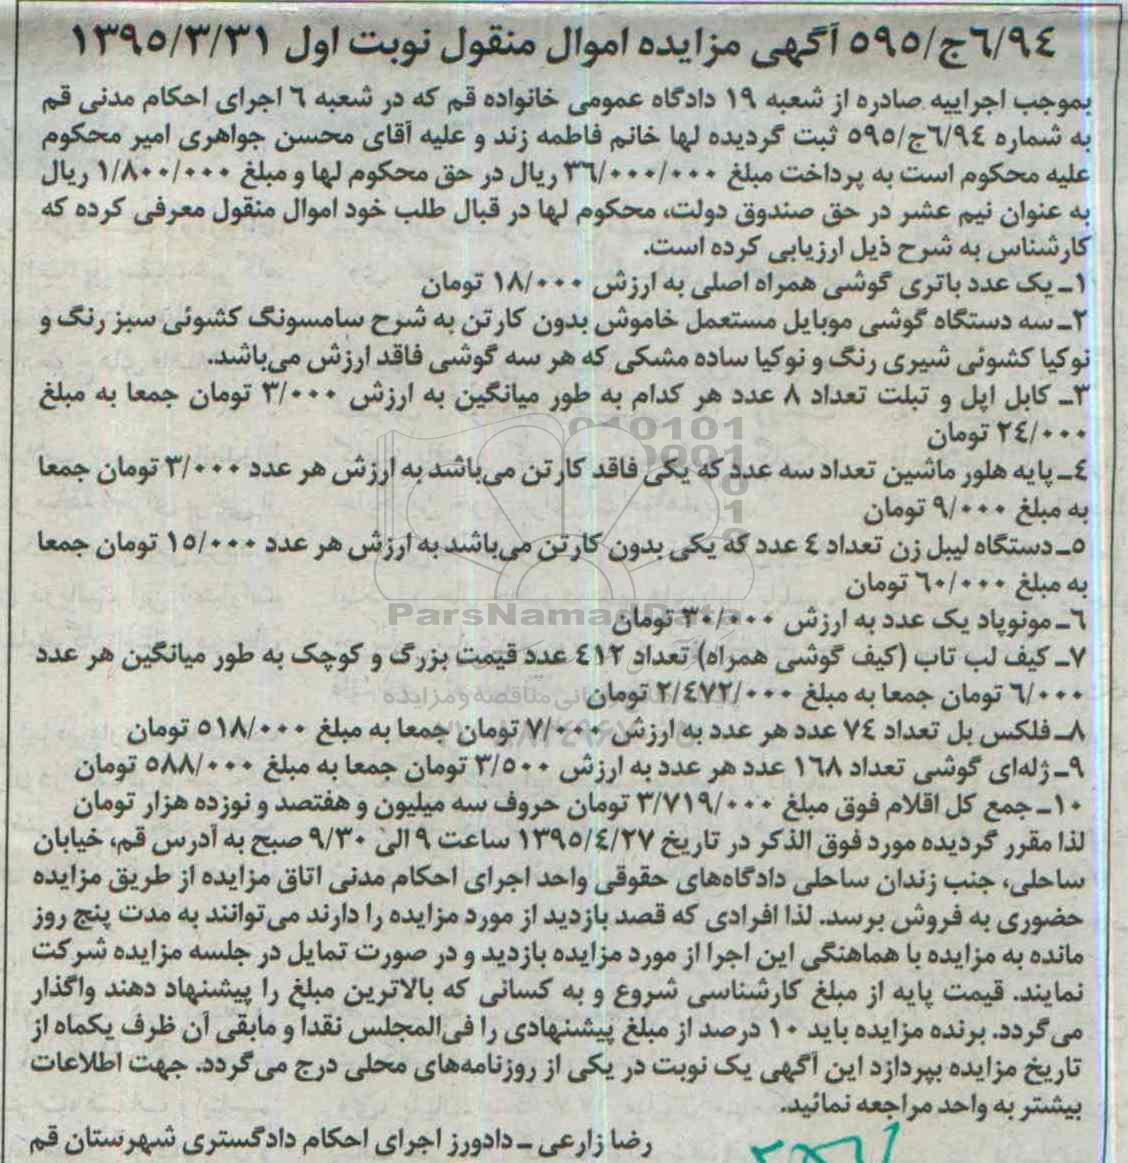 ۵۹۵/ج۶/۹٤ آگهی مزایده اموال منقول نوبت اول ۱۳۹۵/۳/۳۱
بموجب اجراییه صادره از شعبه ۱۹ دادگاه عمومی خانواده قم که در شعبه ٦ اجرای احکام مدنی قم
به شماره ۵۹۵/ج۶/۹٤ ثبت گردیده لها خانم فاطمه زند و علیه آقای محسن جواهری امیر محکوم
علیه محکوم است به پرداخت مبلغ ۳٦/۰۰۰/۰۰۰ ریال در حق محکوم لها و مبلغ ۱/۸۰۰/۰۰۰ ریال
به عنوان نیم عشر در حق صندوق دولت، محکوم لها در قبال طلب خود اموال منقول معرفی کرده که
کارشناس به شرح ذیل ارزیابی کرده است.
۱ـ یک عدد باتری گوشی همراه اصلی به ارزش ۱۸/۰۰۰ تومان
۲ـ سه دستگاه گوشی موبایل مستعمل خاموش بدون کارتن به شرح سامسونگ کشوئی سبز رنگ و
نوکیا کشوئی شیری رنگ و نوکیا ساده مشکی که هر سه گوشی فاقد ارزش می‌باشد.
۳ـ کابل اپل و تبلت تعداد ۸ عدد هر کدام به طور میانگین به ارزش ۳/۰۰۰ تومان جمعا به مبلغ
۲٤/۰۰۰ تومان
٤ـ پایه هلور ماشین تعداد سه عدد که یکی فاقد کارتن می‌باشد به ارزش هر عدد ۳/۰۰۰ تومان جمعا
به مبلغ ۹/۰۰۰ تومان
۵ـ دستگاه لیبل زن تعداد ٤ عدد که یکی بدون کارتن می‌باشد به ارزش هر عدد ۱۵/۰۰۰ تومان جمعا
به مبلغ ٦۰/۰۰۰ تومان
٦ـ مونوپاد یک عدد به ارزش ۳۰/۰۰۰ تومان
۷ـ کیف لب تاب (کیف گوشی همراه) تعداد ٤۱۲ عدد قیمت بزرگ و کوچک به طور میانگین هر عدد
٦/۰۰۰ تومان جمعا به مبلغ ۲/٤۷۲/۰۰۰ تومان
۸ـ فلکس بل تعداد ۷٤ عدد هر عدد به ارزش ۷/۰۰۰ تومان جمعا به مبلغ ۵۱۸/۰۰۰ تومان
۹ـ ژله‌ای گوشی تعداد ۱٦۸ عدد هر عدد به ارزش ۳/۵۰۰ تومان جمعا به مبلغ ۵۸۸/۰۰۰ تومان
۱۰ـ جمع کل اقلام فوق مبلغ ۳/۷۱۹/۰۰۰ تومان حروف سه میلیون و هفتصد و نوزده هزار تومان
لذا مقرر گردیده مورد فوق الذکر در تاریخ ۱۳۹۵/٤/۲۷ ساعت ۹ الی ۹/۳۰ صبح به آدرس قم، خیابان
ساحلی، جنب زندان ساحلی دادگاه‌های حقوقی واحد اجرای احکام مدنی اتاق مزایده از طریق مزایده
حضوری به فروش برسد. لذا افرادی که قصد بازدید از مورد مزایده را دارند می‌توانند به مدت پنج روز
مانده به مزایده با هماهنگی این اجرا از مورد مزایده بازدید و در صورت تمایل در جلسه مزایده شرکت
نمایند. قیمت پایه از مبلغ کارشناسی شروع و به کسانی که بالاترین مبلغ را پیشنهاد دهند واگذار
می‌گردد. برنده مزایده باید ۱۰ درصد از مبلغ پیشنهادی را فی‌المجلس نقدا و مابقی آن ظرف یکماه از
تاریخ مزایده بپردازد این آگهی یک نوبت در یکی از روزنامه‌های محلی درج می‌گردد. جهت اطلاعات
بیشتر به واحد مراجعه نمائید.
رضا زارعی ـ دادورز اجرای احکام دادگستری شهرستان قم
ParsNamadData